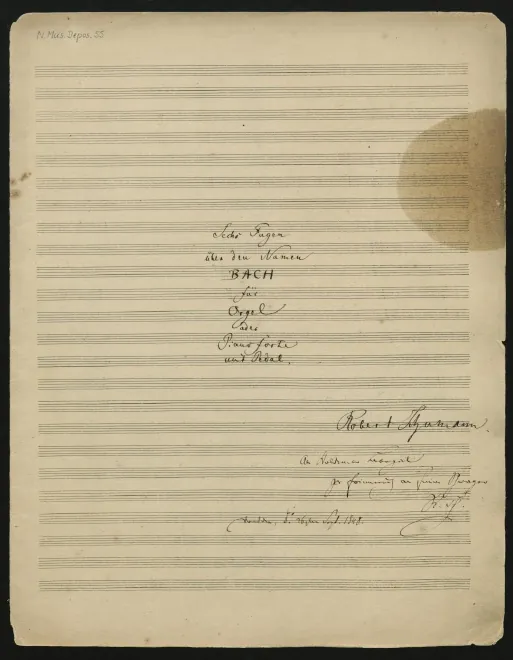 N. Mus. Depos. 55
Sechs Fugen
über den Namen
BACH
für
Orgel
oder
Pianoforte
und Pedal.
Robert Schumann.
An
zur Erinnerung an
R. Sch.
Dresden, d. Sept. 1848.